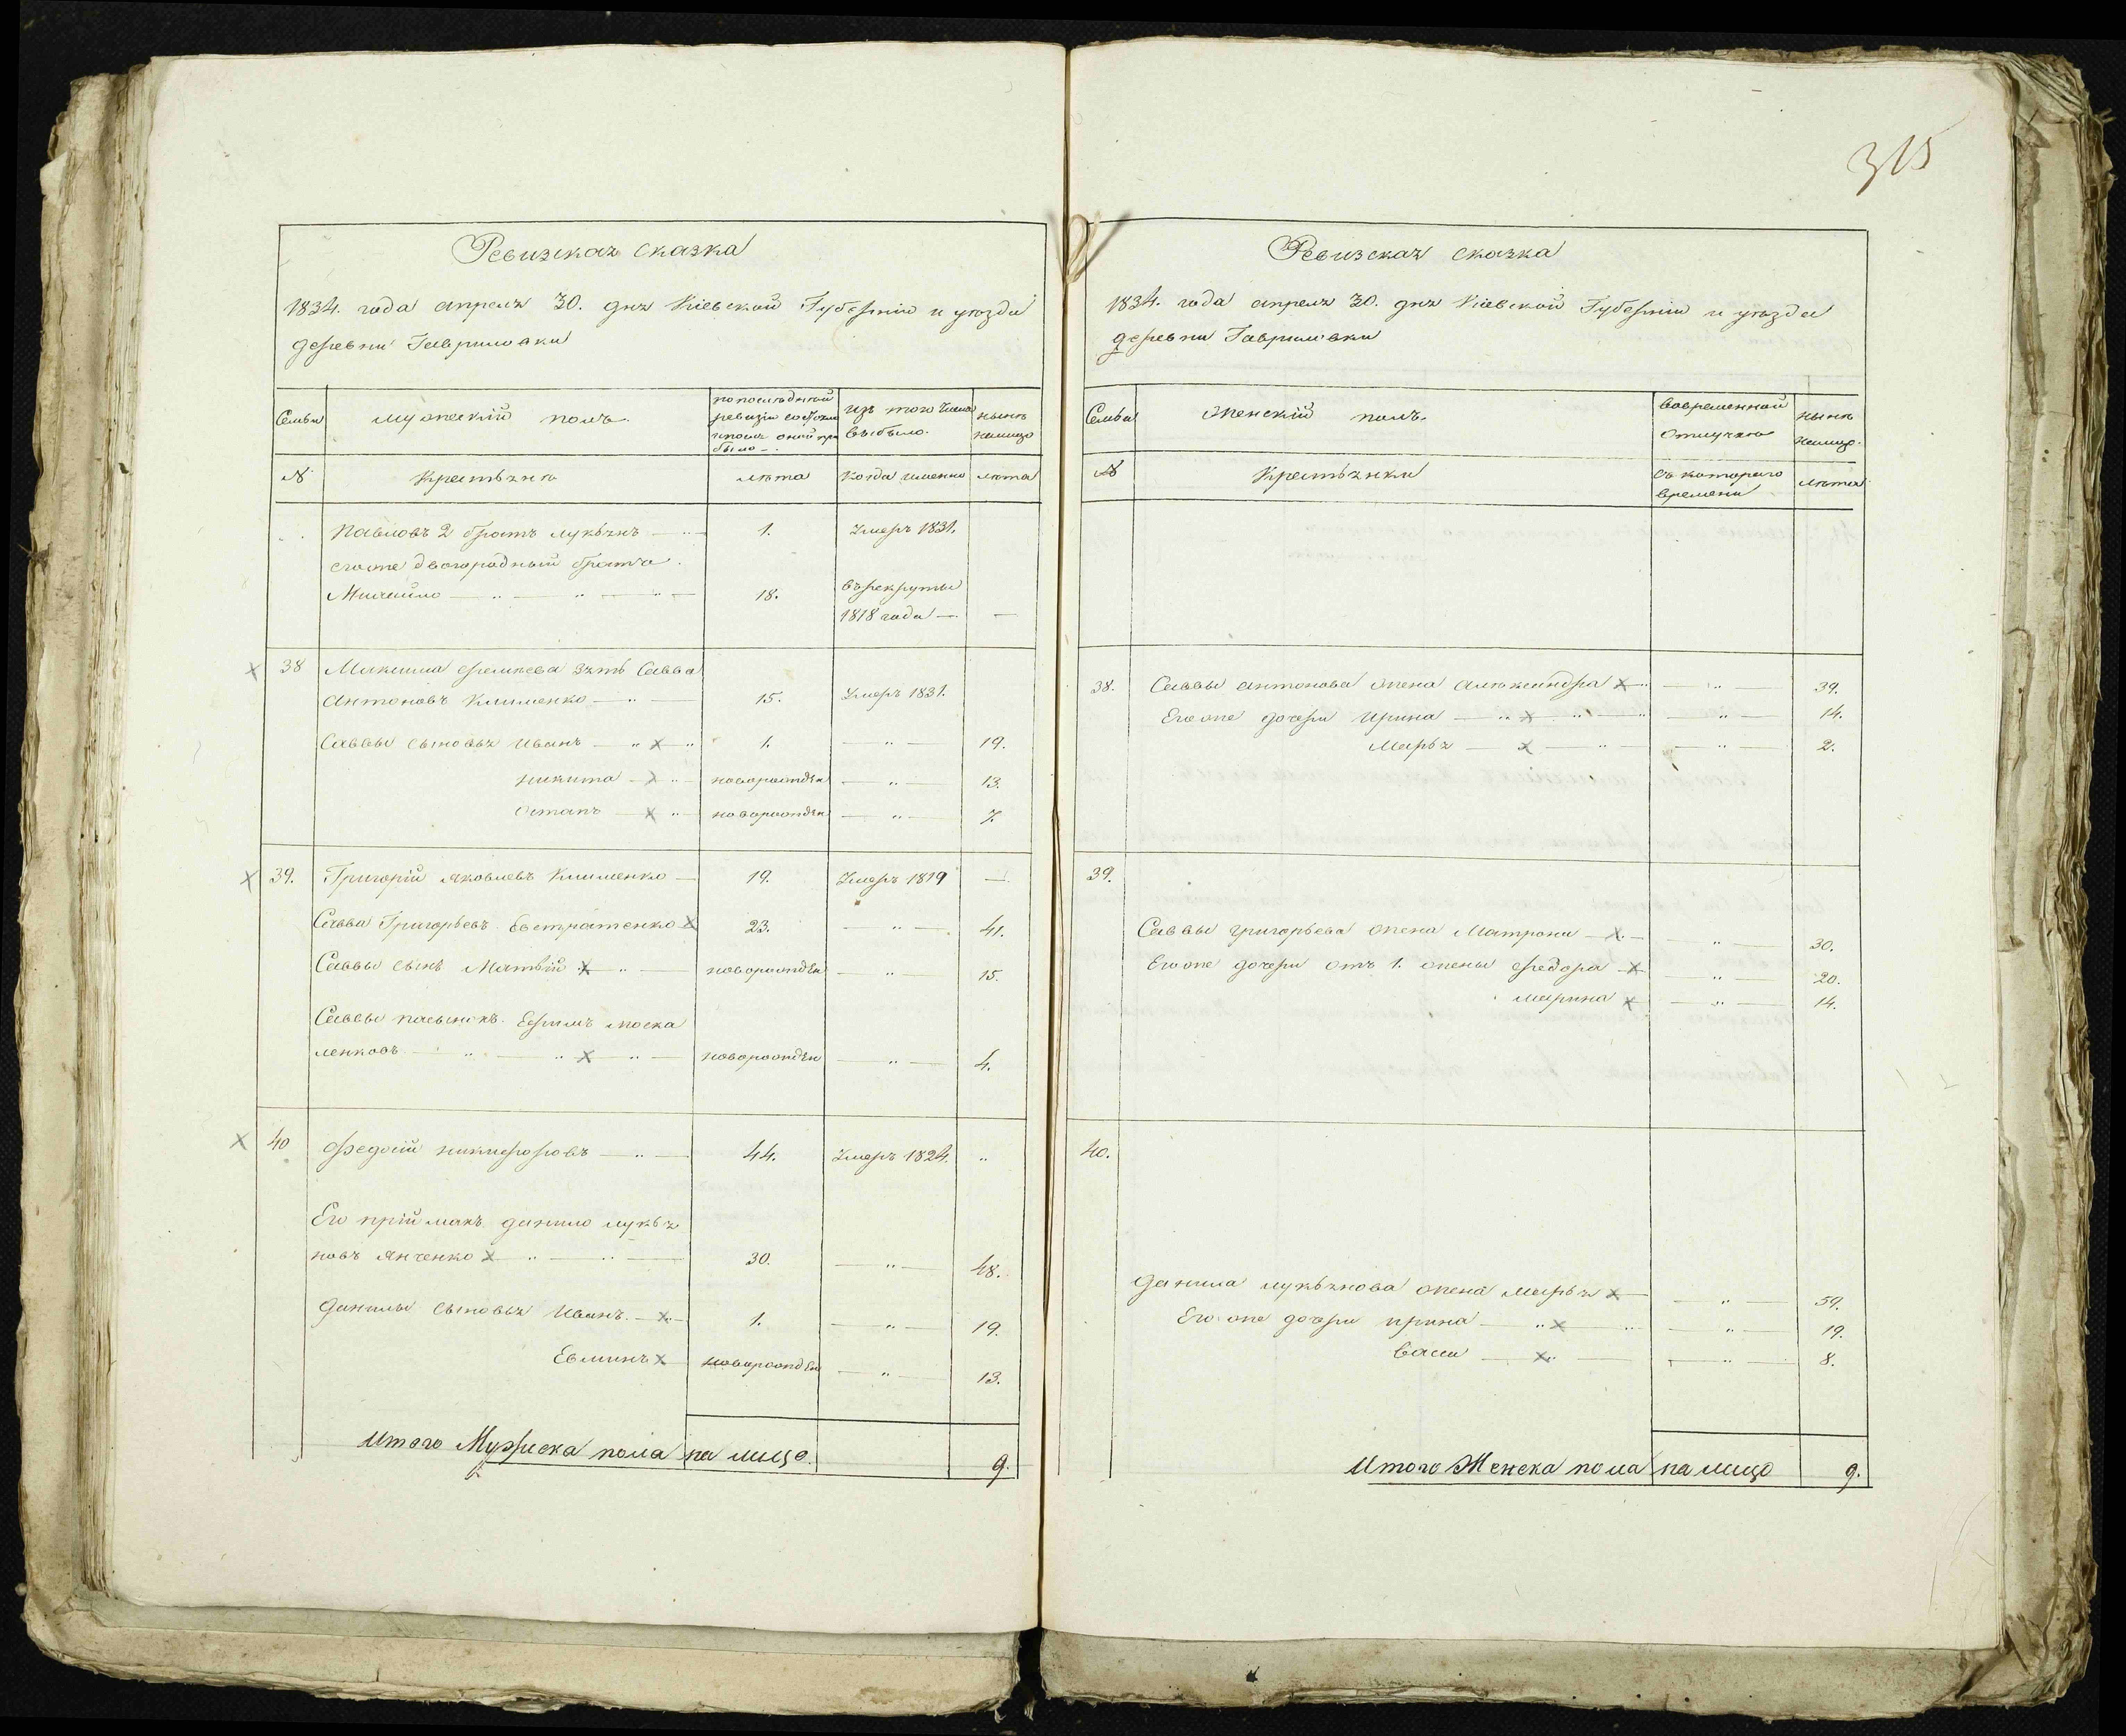 315
Ревизская сказка
1834. года апреля 30. дня Кіевской Губерніи и уѣзда
деревни Гавриловки
Семьи
мужескій полъ.
по последней
ревизіи состояло
и после оной при
было
изъ того числа
выбыло.
нынѣ
налицо
№
Крестьяне
лѣта
Когда именно
лѣта
Павловъ 2 братъ Лукьянъ 1. Умеръ 1831.
егоже двоюродный братъ
Михайло 18. въ рекруты
1818 года
38 Максима зять Савва
Антоновъ Клименко 15. Умеръ 1831.
Саввы сыновья Иванъ 1. 19.
Никита новорожден 13.
Остапъ новорожден 7.
39. Григорій Яковлевъ Клименко 19. Умеръ 1819
Савва Григорьевъ Евстратенко 23. 41.
Саввы сынъ Матвій новорожден 15.
Саввы пасынокъ Ефимъ Моска
ленковъ новорожден 4.
40 Федосій Никифоровъ 44. Умеръ 1824.
Его пріймакъ Данило Лукья
новъ Янченко 30. 48.
Данилы сыновья Иванъ 1. 19.
новорожден 13.
Итого Мужеска пола на лицо 9.
Ревизская сказка
1834. года апреля 30. дня Кіевской Губерніи и уѣзда
деревни Гавриловки
Семьи
женскій полъ.
во временной
отлучке
нынѣ
налицо.
№
Крестьянки
съ котораго
времени
лѣта
38. Саввы Антонова жена Александра 39.
Его же дочери Ирина 14.
Марья 2.
39.
Саввы Григорьева жена Матрона 30.
Его же дочери отъ 1. жены Федора 20.
Марина 14.
40.
Данила Лукьянова жена Марья 59.
Его же дочери Ирина 19.
Васса 8.
Итого Женска пола на лицо 9.